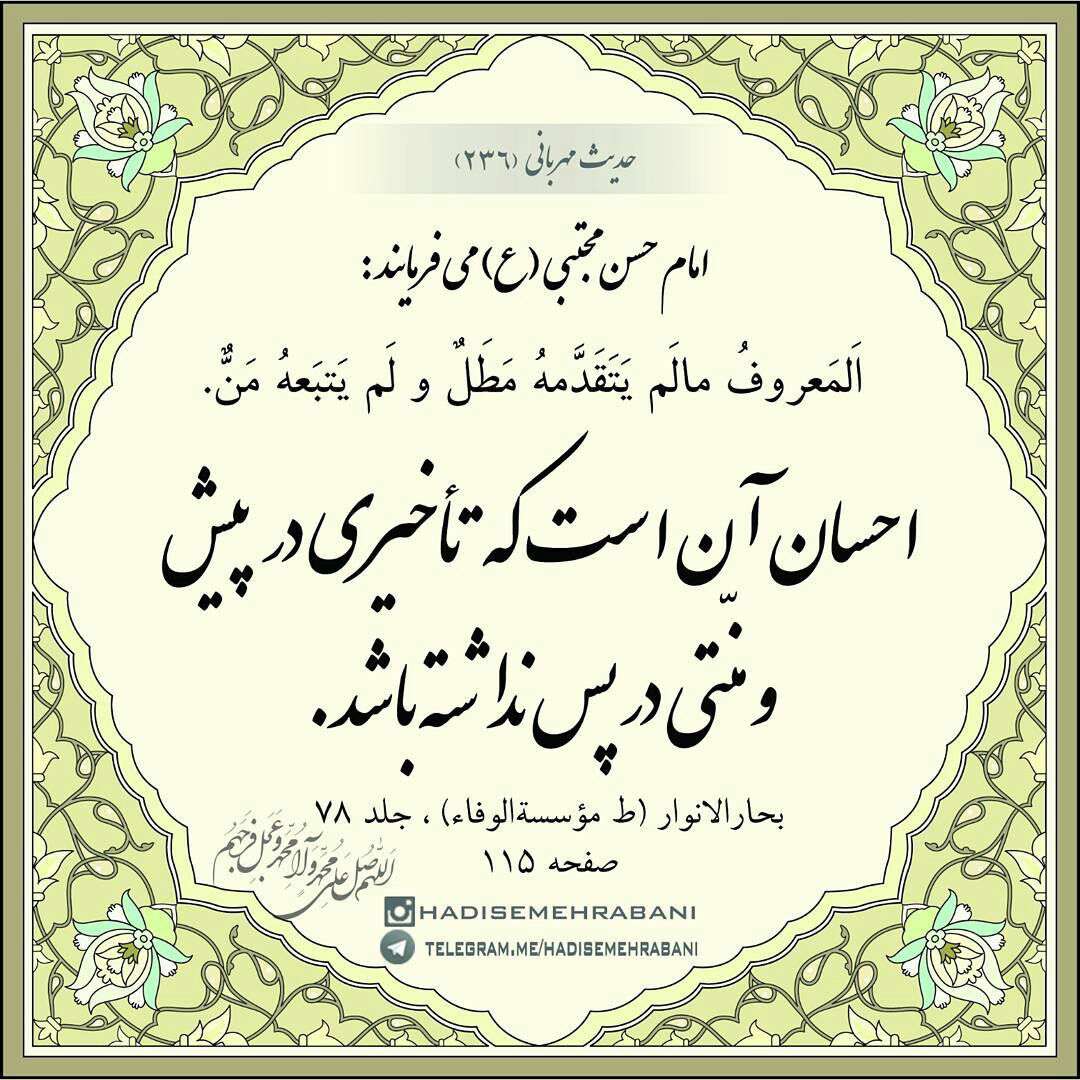 حدیث مهربانی (۲۳۶)
امام حسن مجتبی (ع) می فرمایند:
اَلمَعروفُ مالَم یَتَقَدَّمهُ مَطَلٌ و لَم یَتبَعهُ مَنٌّ.
احسان آن است که تأخیری در پیش
و منّتی در پس نداشته باشد.
بحارالانوار (ط مؤسسةالوفاء) ، جلد ۷۸
صفحه ۱۱۵
اللهم صل علی محمد و آل محمد و عجل فرجهم
HADISEMEHRABANI
TELEGRAM.ME/HADISEMEHRABANI